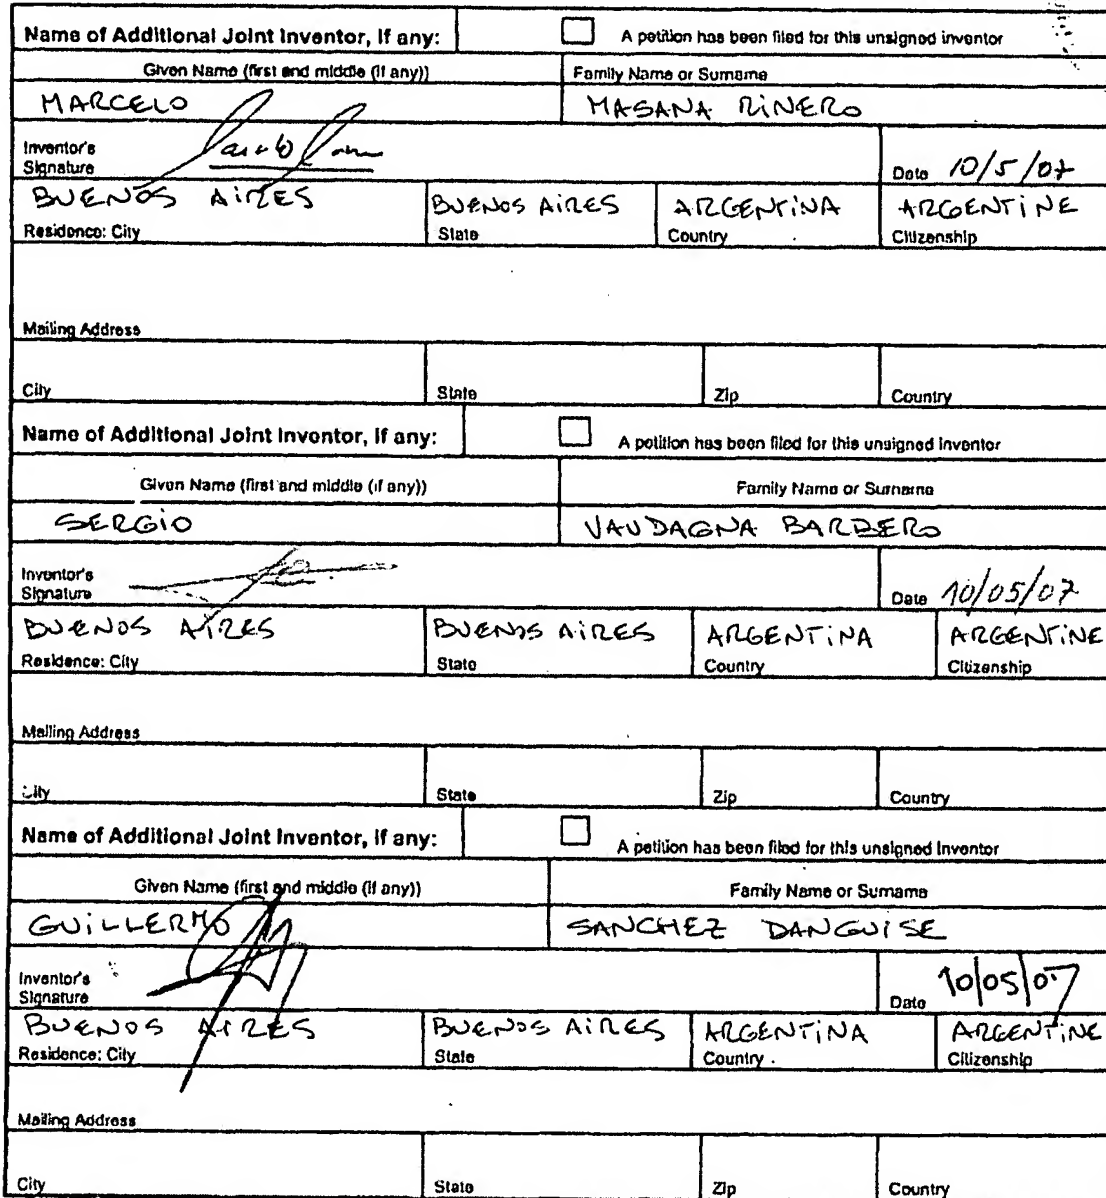 Name of Additional Joint Inventor, if any: A petition has been filed for this unsigned inventor
Given Name (first and middle (if any)) Family Name or Surname
MARCELO MASANA RINERO
Inventor's
Signature Date 10/5/07
BUENOS AIRES BUENOS AIRES ARGENTINA ARGENTINE
Residence: City State Country Citizenship
Mailing Address
City State Zip Country
Name of Additional Joint Inventor, if any: A petition has been filed for this unsigned inventor
Given Name (first and middle (if any)) Family Name or Surname
SERGIO VAUDAGNA BARBERO
Inventor's
Signature Date 10/05/07
BUENOS AIRES BUENOS AIRES ARGENTINA ARGENTINE
Residence: City State Country Citizenship
Mailing Address
City State Zip Country
Name of Additional Joint Inventor, if any: A petition has been filed for this unsigned Inventor
Given Name (first and middle (if any)) Family Name or Surname
GUILLERMO SANCHEZ DANGUISE
Inventor's
Signature Date 10/05/07
BUENOS AIRES BUENOS AIRES ARGENTINA ARGENTINE
Residence: City State Country Citizenship
Mailing Address
City State Zip Country